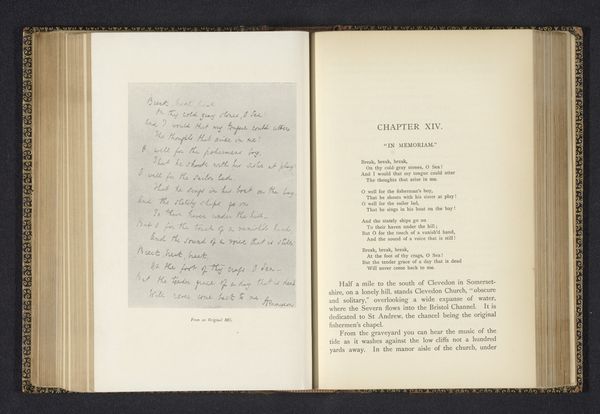 Break, break, break
On thy cold gray stones, O Sea
And I would that my tongue could utter
The thoughts that arise in me!
O well for the fisherman's boy,
That he shouts with his sister at play
O well for the sailor lad,
That he sings in his boat on the bay
And the stately ships go on
To their haven under the hill—
But O for the touch of a vanish'd hand,
And the sound of a voice that is still
Break, break, break,
At the foot of thy crags O Sea—
But the tender grace of a day that is dead
Will never come back to me
ATennyson
From an Original MS.
CHAPTER XIV.
"IN MEMORIAM."
Break, break, break,
On thy cold gray stones, O Sea!
And I would that my tongue could utter
The thoughts that arise in me.
O well for the fisherman's boy,
That he shouts with his sister at play!
O well for the sailor lad,
That he sings in his boat on the bay!
And the stately ships go on
To their haven under the hill;
But O for the touch of a vanish'd hand,
And the sound of a voice that is still!
Break, break, break,
At the foot of thy crags, O Sea!
But the tender grace of a day that is dead
Will never come back to me.
Half a mile to the south of Clevedon in Somerset-
shire, on a lonely hill, stands Clevedon Church, "obscure
and solitary," overlooking a wide expanse of water,
where the Severn flows into the Bristol Channel. It is
dedicated to St Andrew, the chancel being the original
fishermen's chapel.
From the graveyard you can hear the music of the
tide as it washes against the low cliffs not a hundred
yards away. In the manor aisle of the church, under